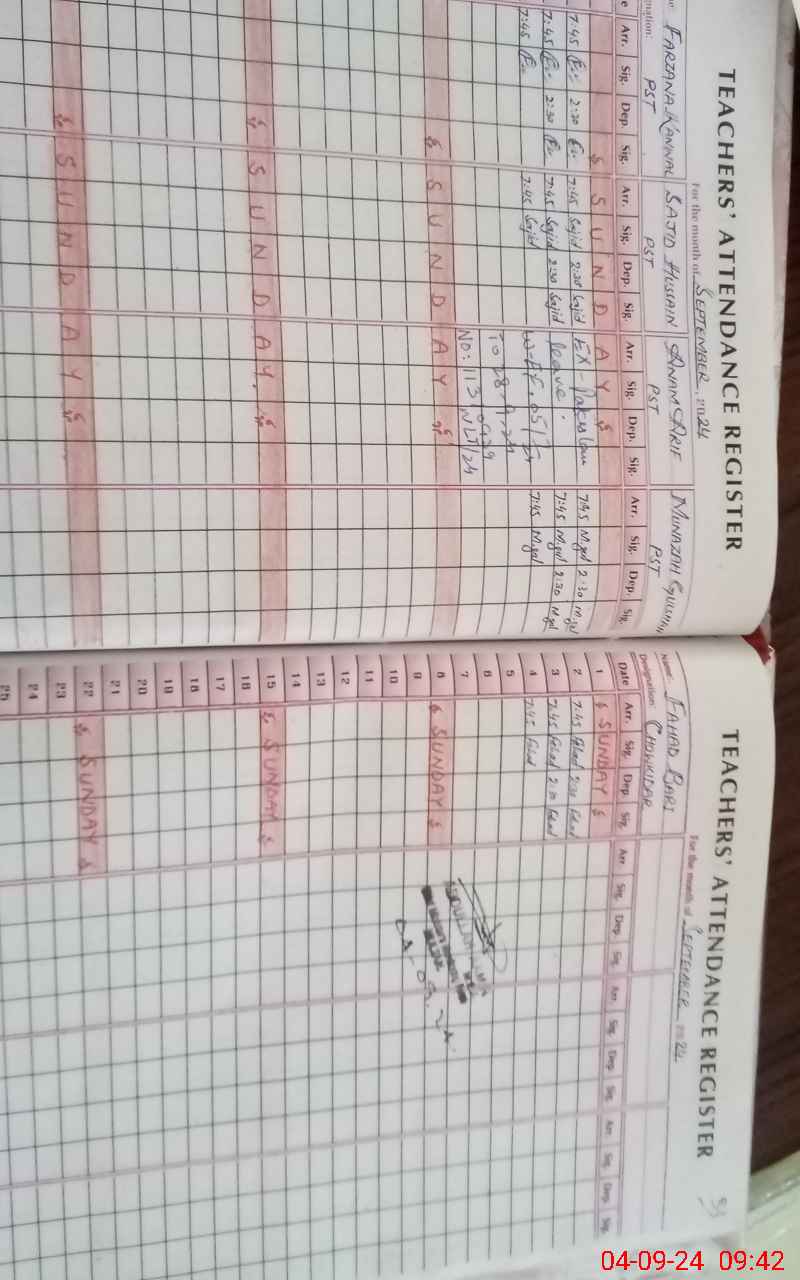 TEACHERS' ATTENDANCE REGISTER
For the month of SEPTEMBER 2024
FARZANA KANWAL SAJID HUSSAIN ANAM ARIF MUNAZAH GULSHAN
PST PST PST PST
Arr. Sig. Dep. Sig. Arr. Sig. Dep. Sig. Arr. Sig. Dep. Sig. Arr. Sig. Dep. Sig.
SUNDAY
7:45 2:30 7:45 Sajid 2:30 Sajid EX-Pakistan 7:45 2:30
7:45 2:30 7:45 Sajid 2:30 Sajid leave. 7:45 2:30
7:45 7:45 Sajid 7:45
NO: 113
SUNDAY
SUNDAY
SUNDAY
TEACHERS' ATTENDANCE REGISTER
For the month of SEPTEMBER 2024
Name: FAHAD BARI
Designation: CHOWKIDAR
Date Arr. Sig. Dep Sig. Arr. Sig. Dep Sig Arr. Sig. Dep Sig. Arr Sig. Dep. Sig.
1 SUNDAY
2 7:45 Fahad 2:30 Fahad
3 7:45 Fahad 2:30 Fahad
4 7:45 Fahad
5
6
7
8 SUNDAY
9
10
11
12
13
14
15 SUNDAY
16
17
18
19
20
21
22 SUNDAY
23
24
25
04-09-24 09:42